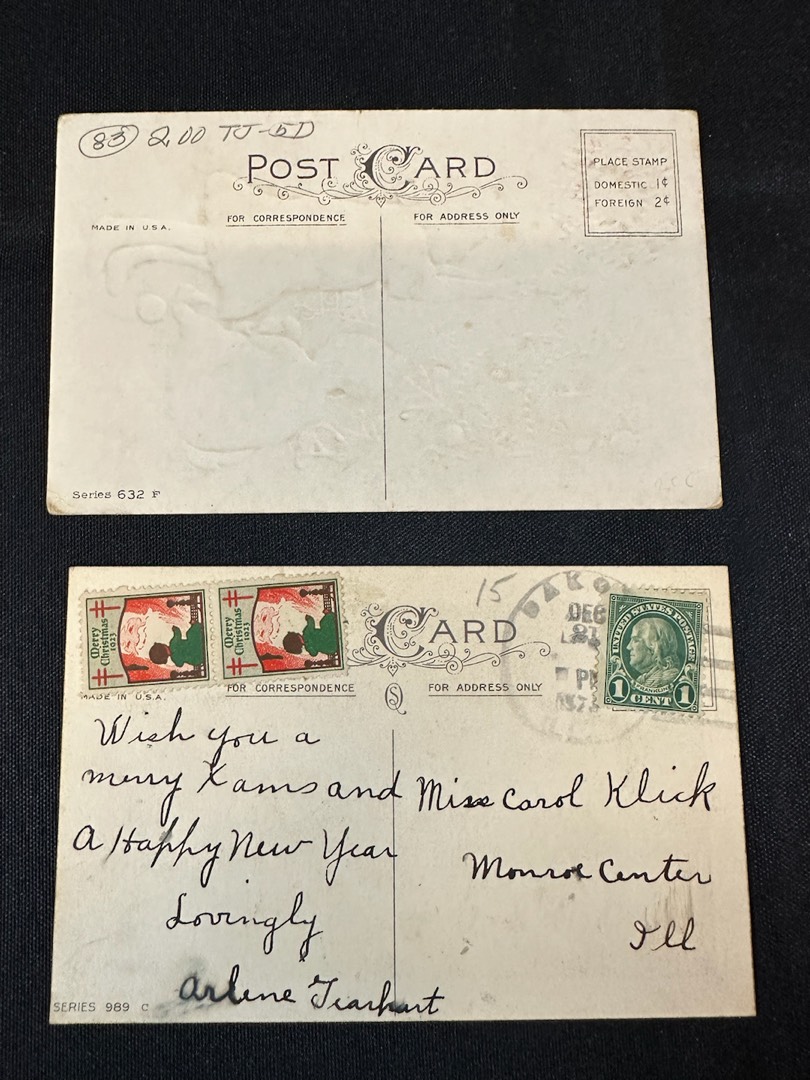 83 2.00 TJ-5D
POST CARD
PLACE STAMP
DOMESTIC 1¢
FOREIGN 2¢
FOR CORRESPONDENCE
FOR ADDRESS ONLY
MADE IN U.S.A.
Series 632 F
Merry Christmas 1923
Merry Christmas 1923
15
CARD
DEC
21
PM
1923
UNITED STATES POSTAGE
FRANKLIN
1 CENT 1
MADE IN U.S.A.
FOR CORRESPONDENCE
FOR ADDRESS ONLY
Wish you a
merry Xams and
A Happy New Year
Lovingly
Arlene Gearhart
Miss Carol Klick
Monroe Center
Ill
SERIES 989 C